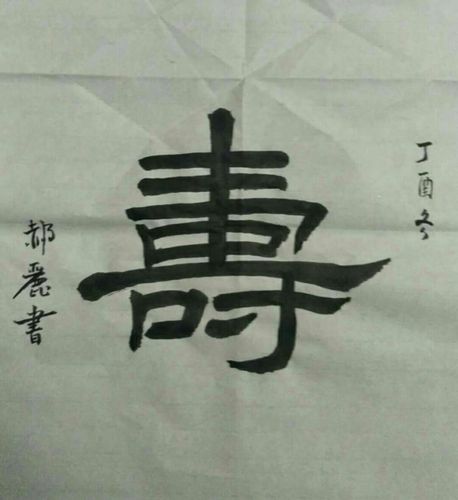 丁酉冬
壽
郝麗書